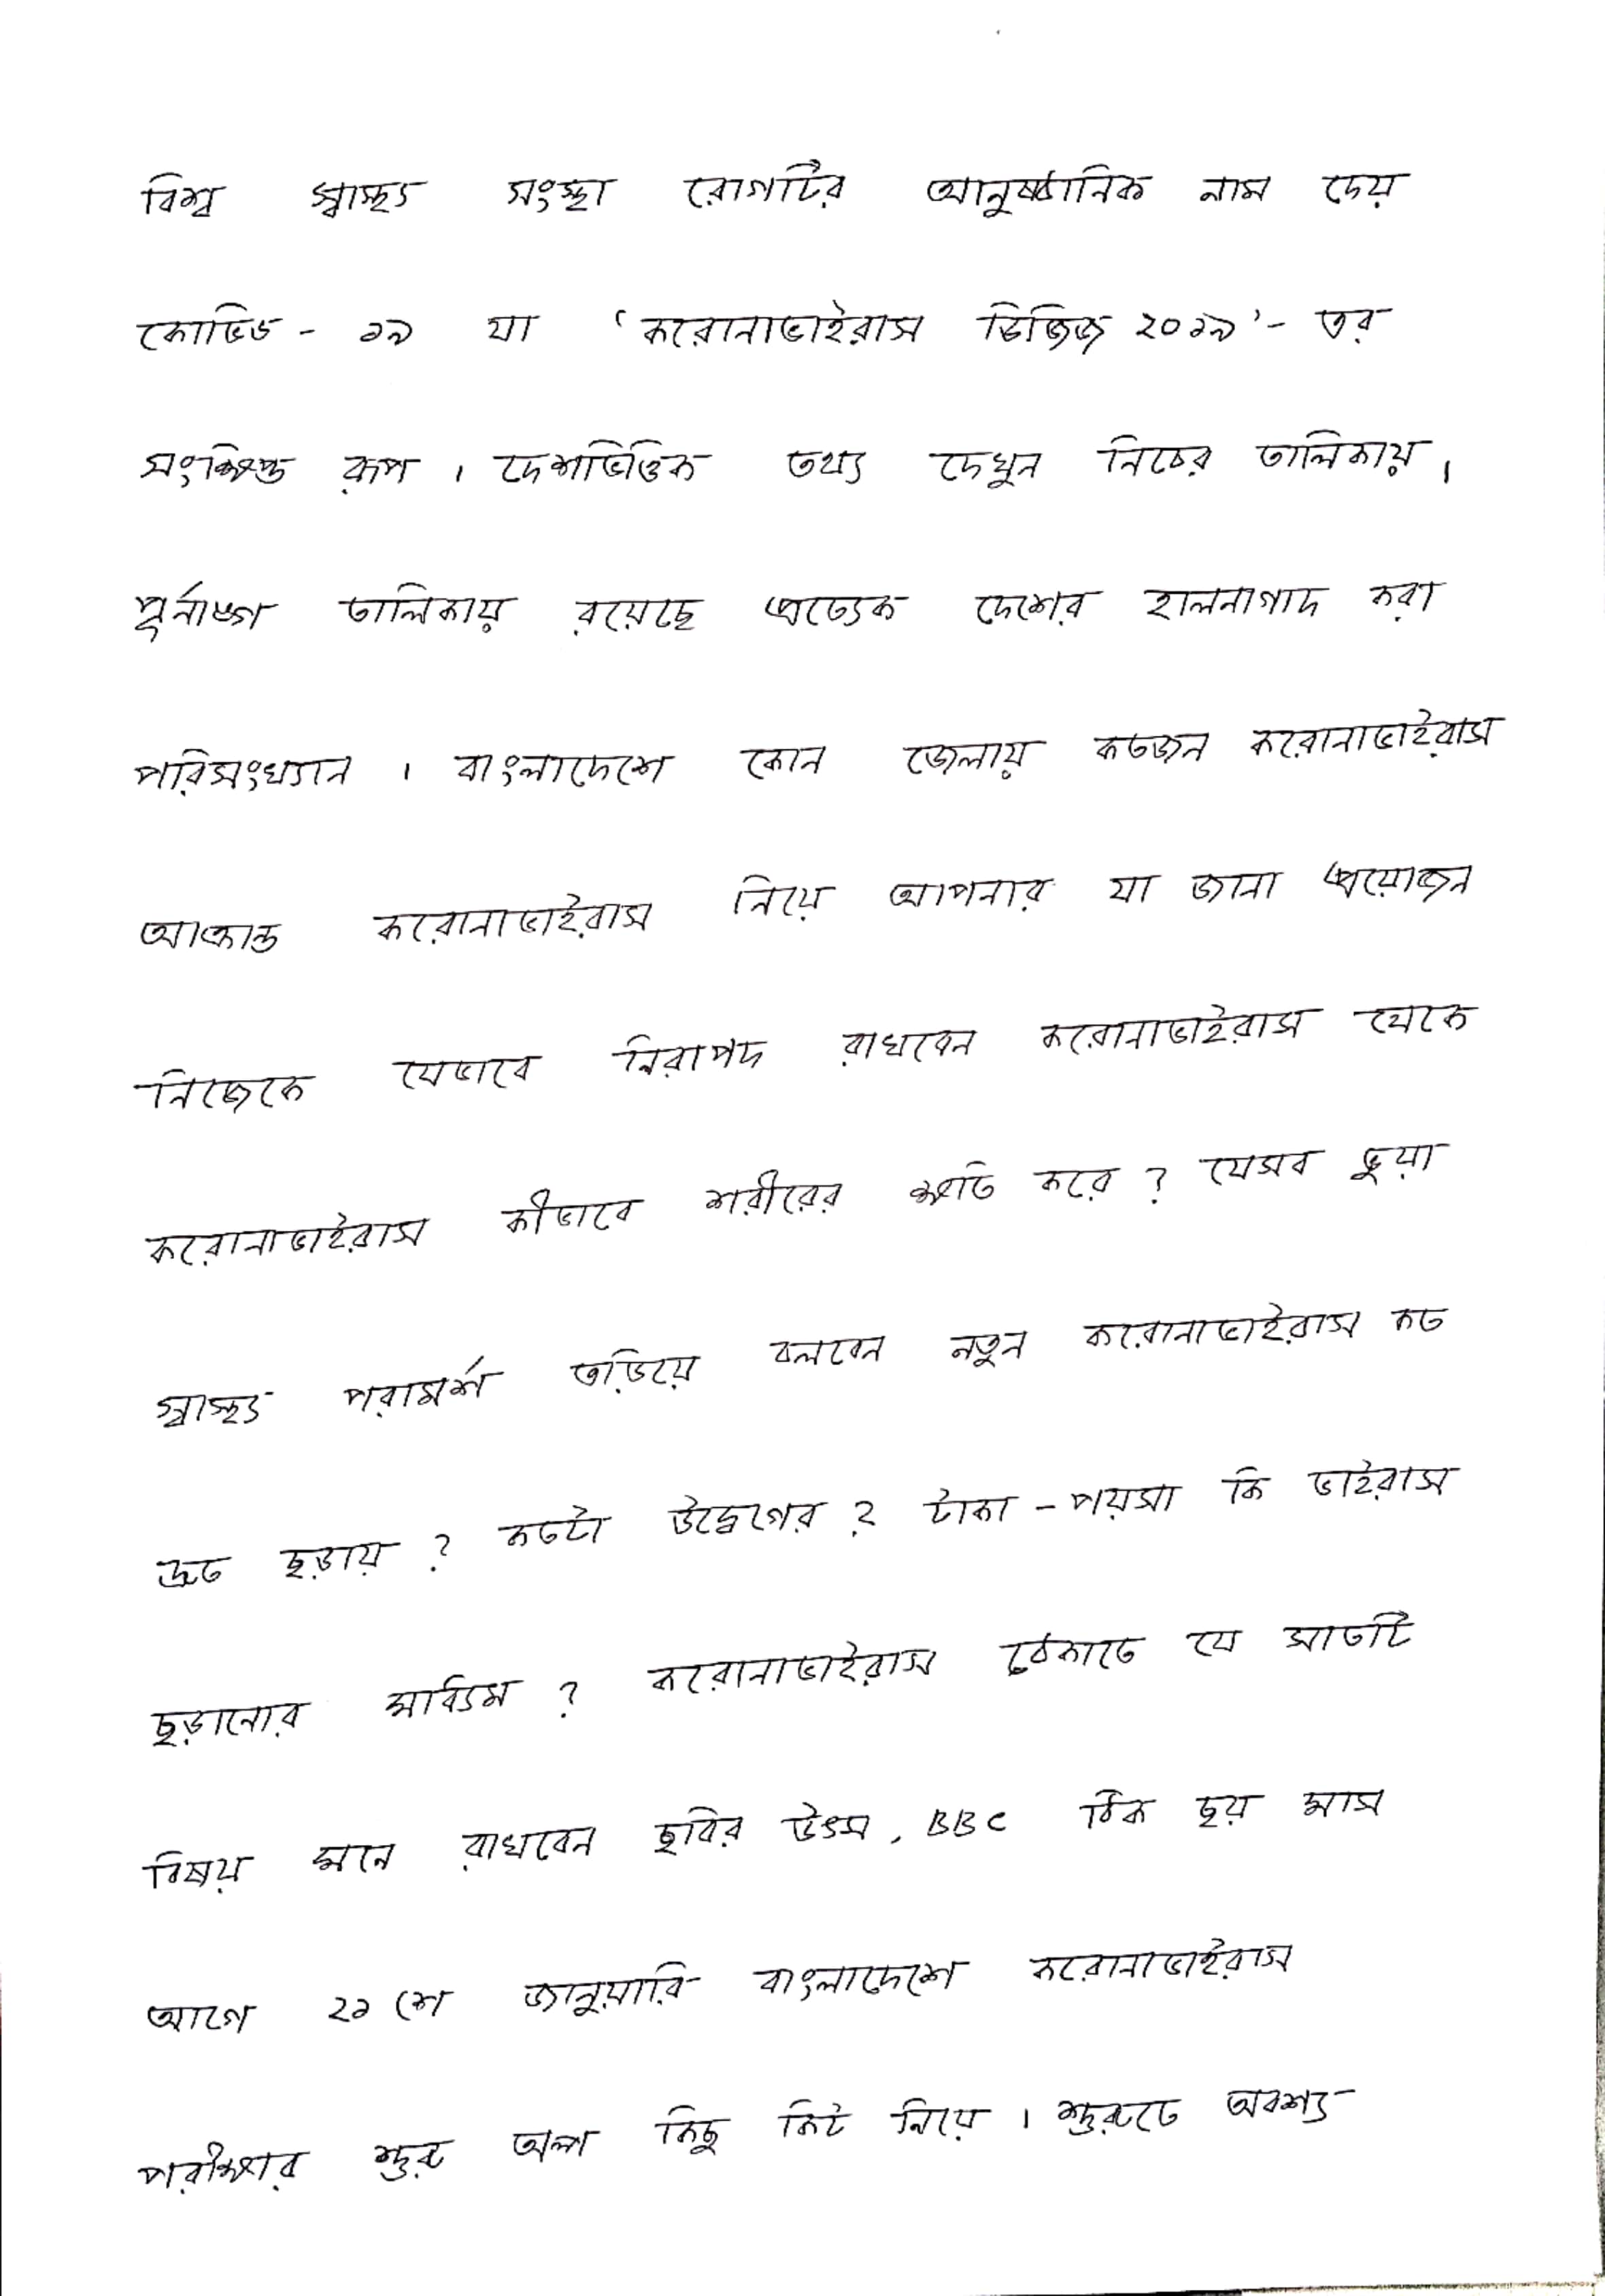 বিশ্ব স্বাস্থ্য সংস্থা রোগটির আনুষ্ঠানিক নাম দেয়
কোভিড - ১৯ যা 'করোনাভাইরাস ডিজিজ ২০১৯'- এর
সংক্ষিপ্ত রূপ । দেশভিত্তিক তথ্য দেখুন নিচের তালিকায় ।
পূর্নাঙ্গ তালিকায় রয়েছে প্রত্যেক দেশের হালনাগাদ করা
পরিসংখ্যান । বাংলাদেশে কোন জেলায় কতজন করোনাভাইরাস
আক্রান্ত করোনাভাইরাস নিয়ে আপনার যা জানা প্রয়োজন
নিজেকে যেভাবে নিরাপদ রাখবেন করোনাভাইরাস থেকে
করোনাভাইরাস কীভাবে শরীরের ক্ষতি করে ? যেসব ভুয়া
স্বাস্থ্য পরামর্শ এড়িয়ে চলবেন নতুন করোনাভাইরাস কত
দ্রুত ছড়ায় ? কতটা উদ্বেগের ? টাকা - পয়সা কি ভাইরাস
ছড়ানোর মাধ্যম ? করোনাভাইরাস ঠেকাতে যে সাতটি
বিষয় মনে রাখবেন ছবির উৎস , BBC ঠিক ছয় মাস
আগে ২১ শে জানুয়ারি বাংলাদেশে করোনাভাইরাস
পরীক্ষার শুরু অল্প কিছু কিট নিয়ে । শুরুতে অবশ্য